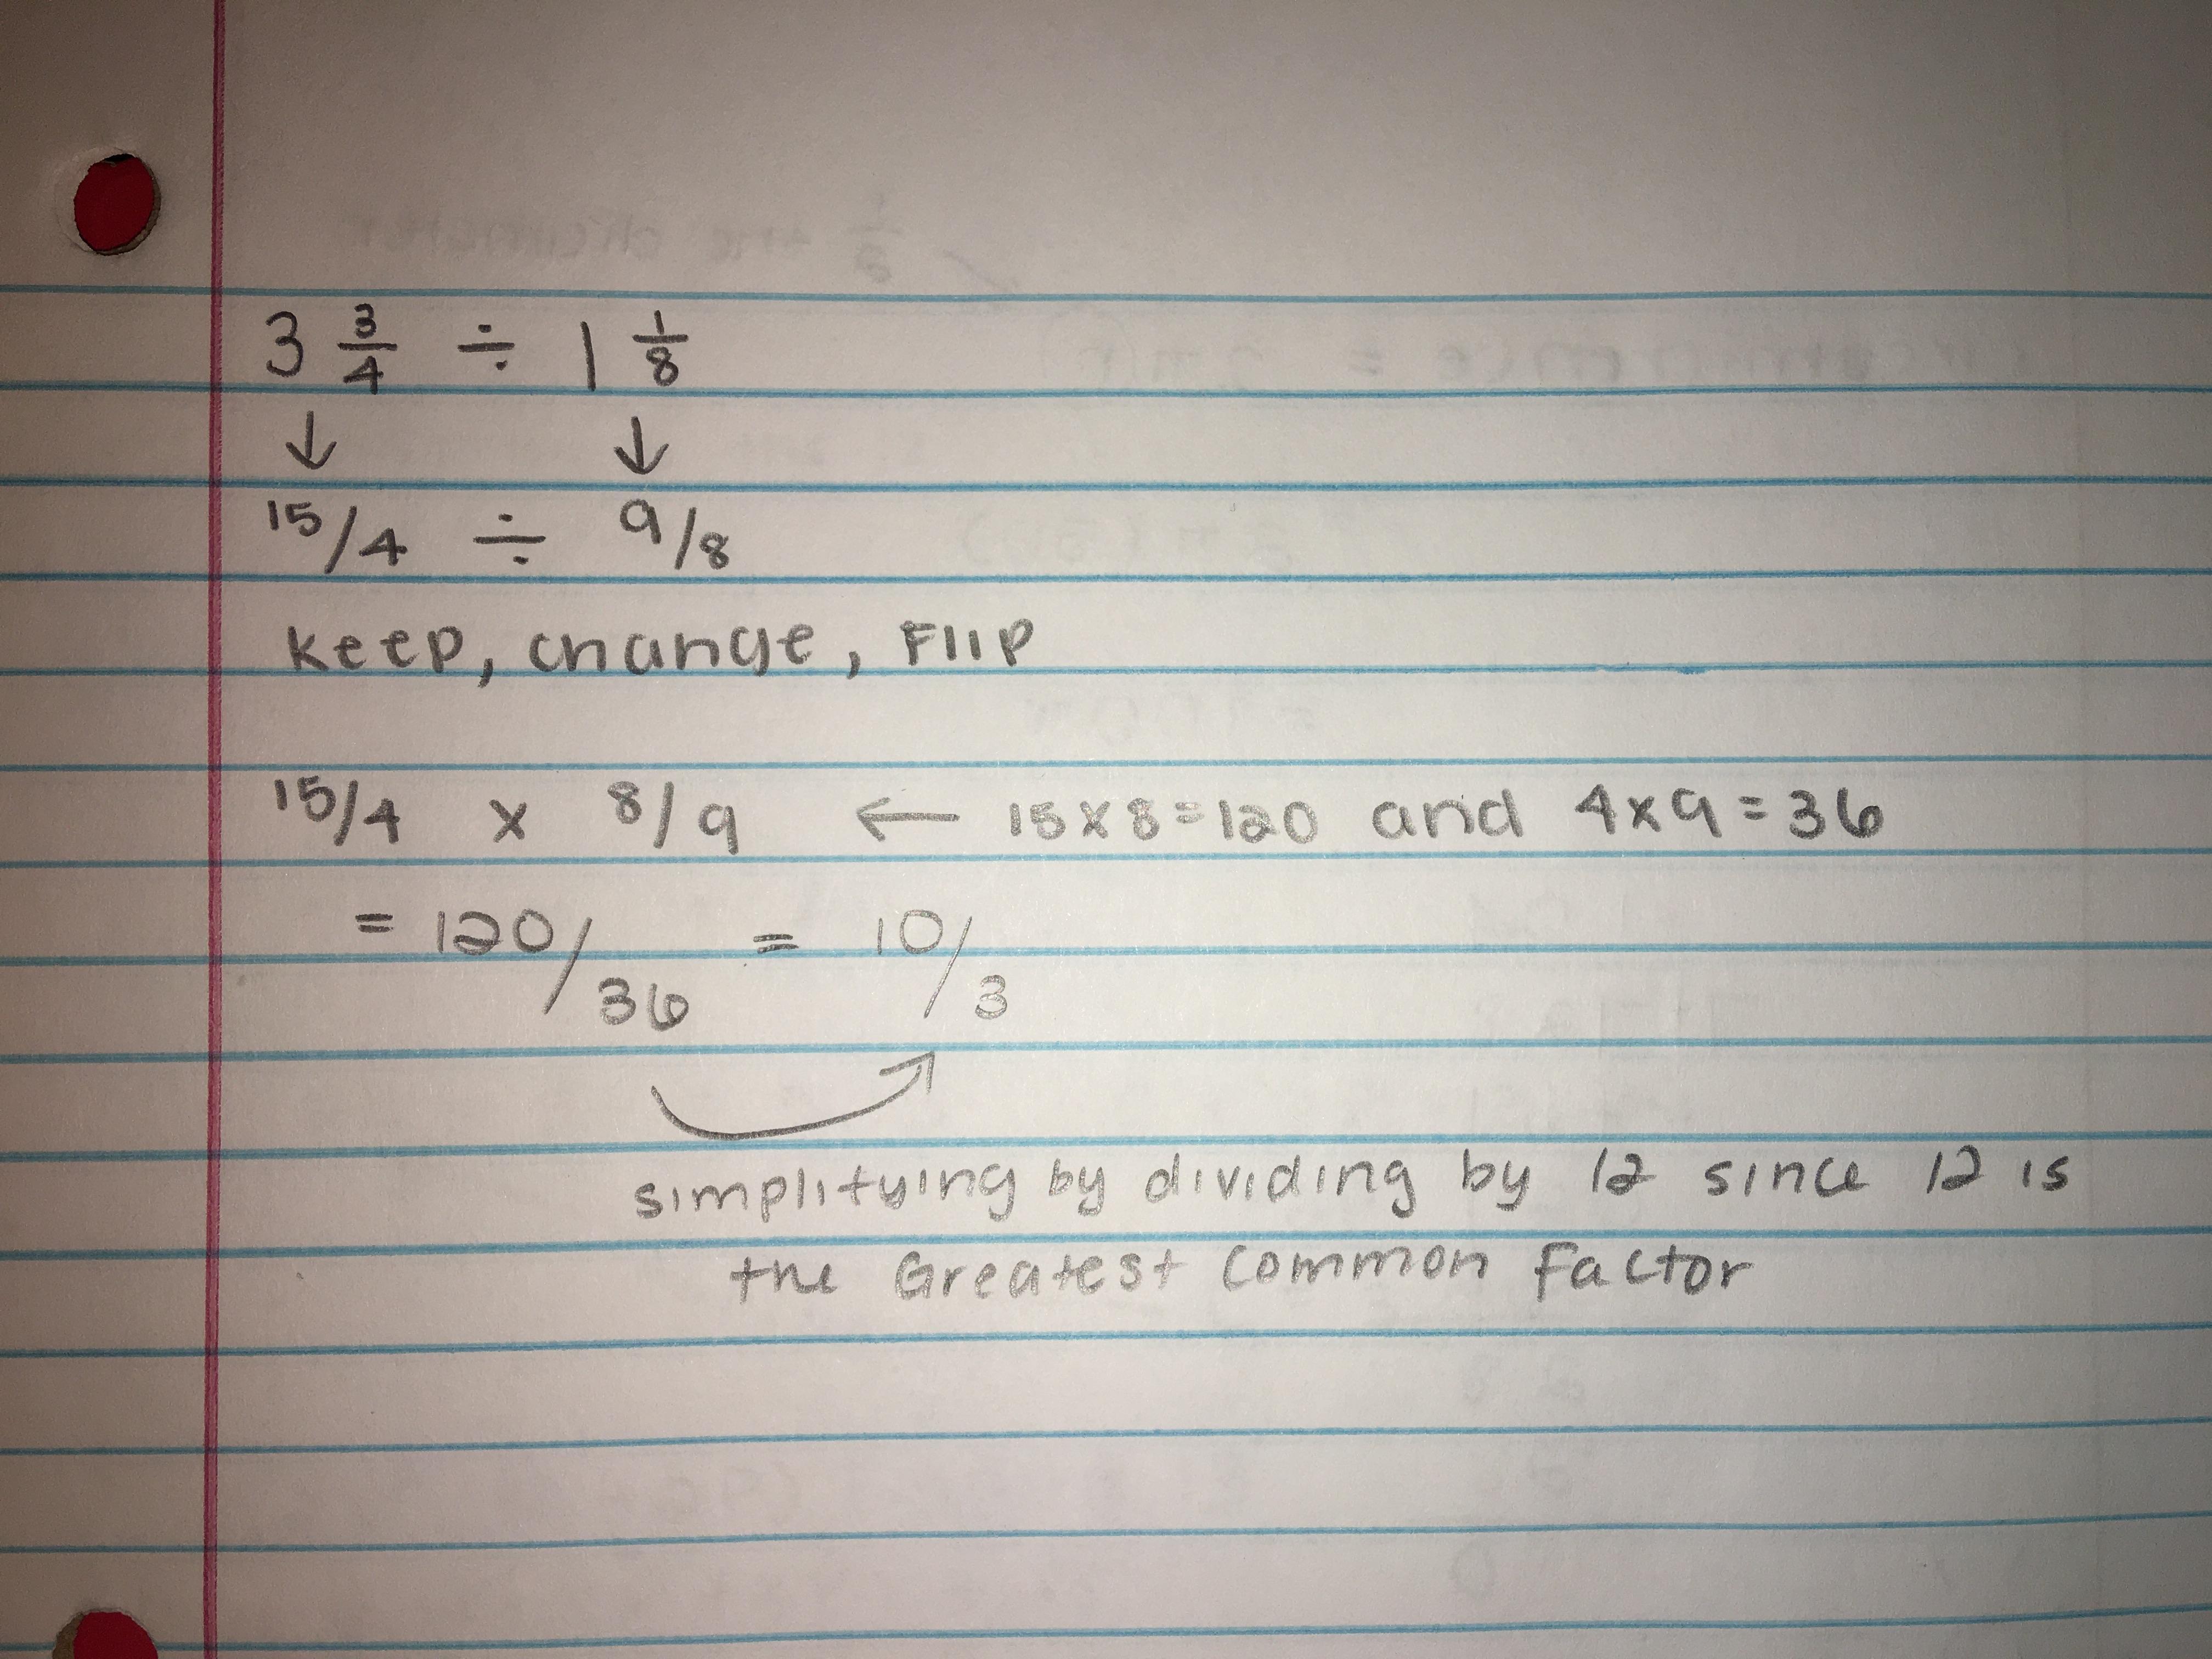 3 3/4 ÷ 1 1/8
↓ ↓
15/4 ÷ 9/8
Keep, change, Flip
15/4 x 8/9 ← 15x8=120 and 4x9=36
= 120/36 = 10/3
simplifying by dividing by 12 since 12 is
the Greatest Common Factor